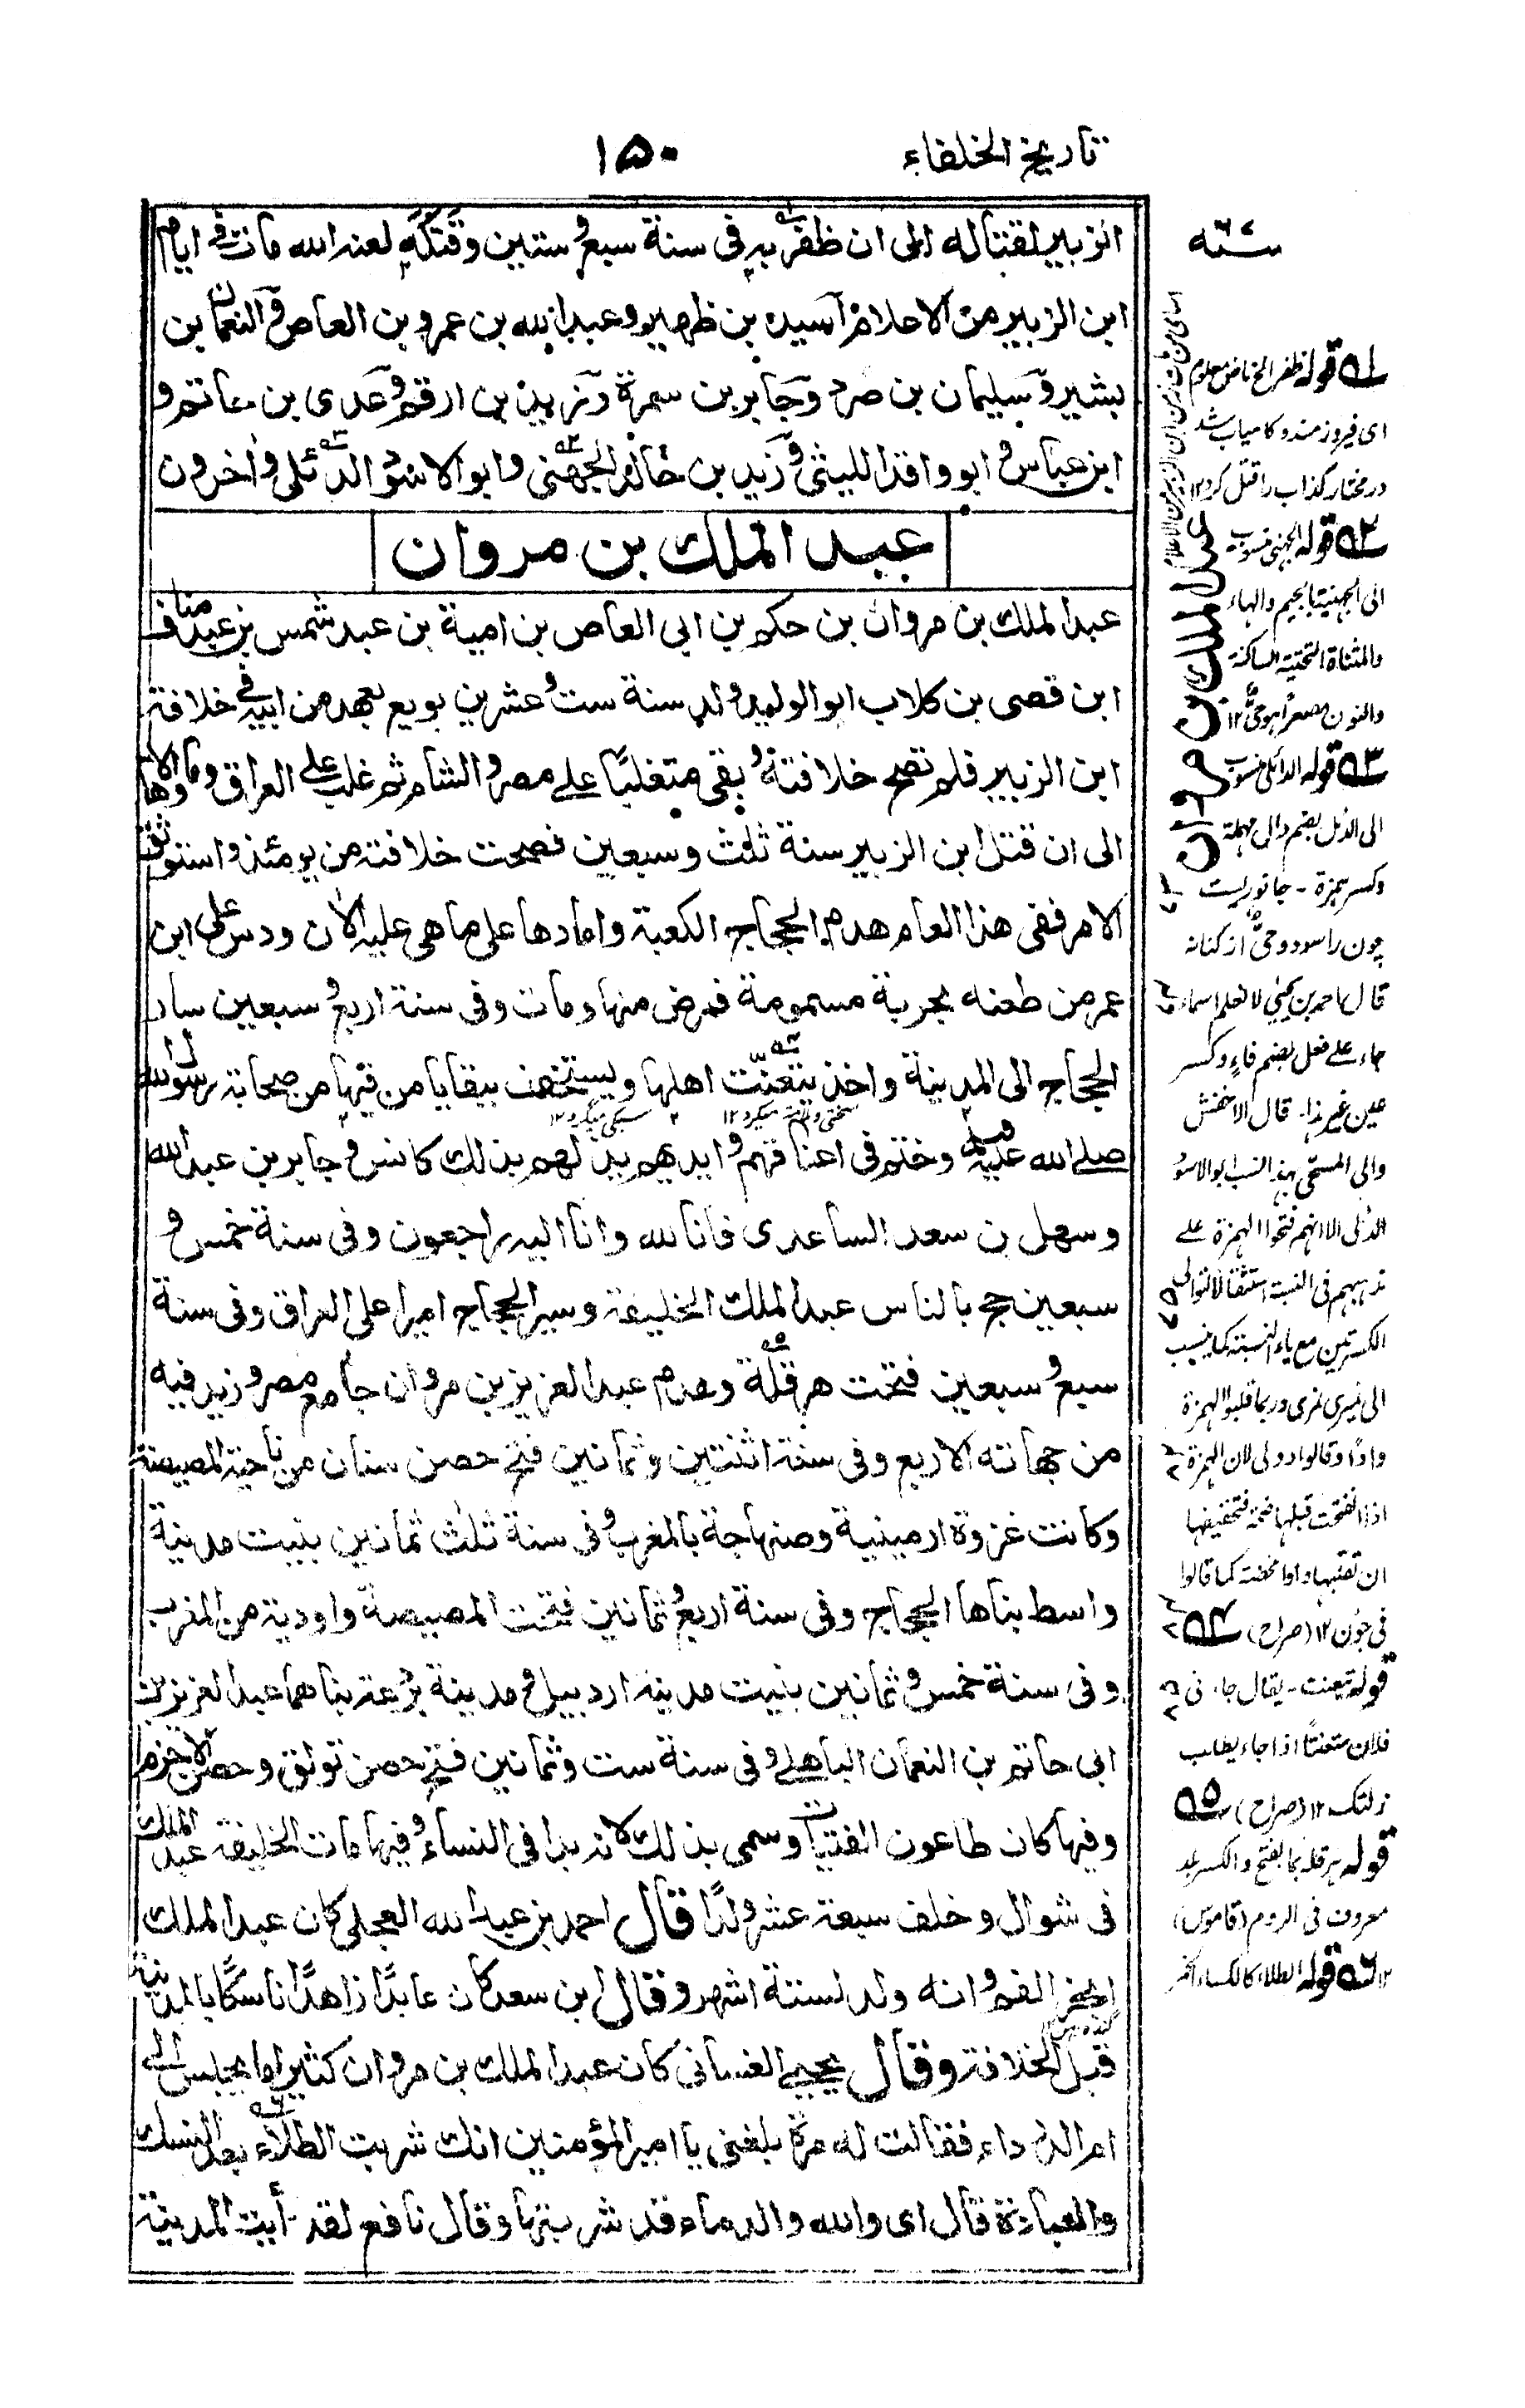 تاريخ الخلفاء
١٥٠
الزبير لقتاله الى ان ظفر به فى سنة سبع و ستين وقتله لعنه الله مات فى ايام
ابن الزبير من الاعلام اسيد بن ظهير و عبد الله بن عمرو بن العاص و النعمان بن
بشير و سليمان بن صرد وجابر بن سمرة و زيد بن ارقم و عدى بن حاتم و
ابن عباس و ابو واقد الليثى و زيد بن خالد الجهنى وابو الاسود الدئلى و اخرون
عبد الملك بن مروان
عبد الملك بن مروان بن حكم بن ابى العاص بن امية بن عبد شمس بن عبد مناف
ابن قصى بن كلاب ابو الوليد ولد سنة ست و عشرين بويع بعهد من ابيه فى خلافة
ابن الزبير فلم تصح خلافته و بقى متغلبا على مصر و الشام ثم غلب على العراق وما والاها
الى ان قتل ابن الزبير سنة ثلث وسبعين فصحت خلافته من يومئذ و استوثق
الامر ففى هذا العام هدم الحجاج الكعبة واعادها على ما هى عليه الان ودس على ابن
عمر من طعنه بحربة مسمومة فمرض منها ومات وفى سنة اربع و سبعين سار
الحجاج الى المدينة واخذ يتعنت اهلها ويستخف ببقايا من فيها من صحابة رسول الله
صلى الله عليه وسلم وختم فى اعناقهم و ايديهم يذلهم بذلك كانس و جابر بن عبد الله
وسهل بن سعد الساعدى فانا لله وانا اليه راجعون وفى سنة خمس و
سبعين حج بالناس عبد الملك الخليفة وسير الحجاج اميرا على العراق وفى سنة
سبع و سبعين فتحت هرقلة وهدم عبد العزيز بن مروان جامع مصر و زيد فيه
من جهاته الاربع وفى سنة اثنتين و ثمانين فتح حصن سنان من ناحية المصيصة
وكانت غزوة ارمينية وصنهاجة بالمغرب و فى سنة ثلث ثمانين بنيت مدينة
واسط بناها الحجاج وفى سنة اربع و ثمانين فتحت المصيصة واودية من المغرب
وفى سنة خمس و ثمانين بنيت مدينة اردبيل و مدينة برذعة بناهما عبد العزيز بن
ابى حاتم بن النعمان الباهلى و فى سنة ست وثمانين فتح حصن تولق وحصن الاخرم
وفيها كان طاعون الفتيات وسمى بذلك لانه بدا فى النساء و فيها مات الخليفة عبد الملك
فى شوال وخلف سبعة عشر ولدا قال احمد بن عبد الله العجلى كان عبد الملك
ابخر الفم و انه ولد لستة اشهر وقال ابن سعد كان عابدا زاهدا ناسكا بالمدينة
قبل الخلافة وقال يحيى الغسانى كان عبد الملك بن مروان كثيرا ما يجلس الى
ام الدرداء فقالت له مرة بلغنى يا امير المؤمنين انك شربت الطلاء بعد النسك
والعبادة قال اى والله والدماء قد شربتها وقال نافع لقد رأيت المدينة
سنه ٦٧
عبد الملك بن مروان
٥١ قوله ظفر الخ ماض معلوم
اى فيروز مند و كامياب شد
در مختار كذاب را قتل كرد ١٢
٥٢ قوله الجهنى منسوب
الى الجهنية بالجيم والهاء
والمثناة التحتية الساكنة
والنون مصغرا هو حى ١٢
٥٣ قوله الدئلى منسوب
الى الدئل بضم دال مهملة
وكسر همزة - جانوريست
چون راسو و وحى از كنانه
قال احمد بن يحيى لا نعلم اسماء
جاء على فعل بضم فاء وكسر
عين غير هذا - قال الاخفش
والى المسمى بهذا النسب ابو الاسود
الدئلى الا انهم فتحوا الهمزة على
مذهبهم فى النسبة استثقالا لتوالى
الكسرتين مع ياء النسبة كما ينسب
الى نمرى نمرى وربما قلبوا الهمزة
واوا وقالوا دولى لان الهمزة
اذا انفتحت قبلها ضمة فتخفيفها
ان تقلبها واوا محضة كما قالوا
فى جون ١٢ (صراح) ٥٤
قوله تعنت - يقال جاء نى
فلان متعنتا اذا جاء يطلب
زلتك ١٢ (صراح) ٥٥
قوله هرقلة بالفتح والكسر بلد
معروف فى الروم (قاموس)
١٢ ٥٦ قوله الطلاء كالكساء الخمر